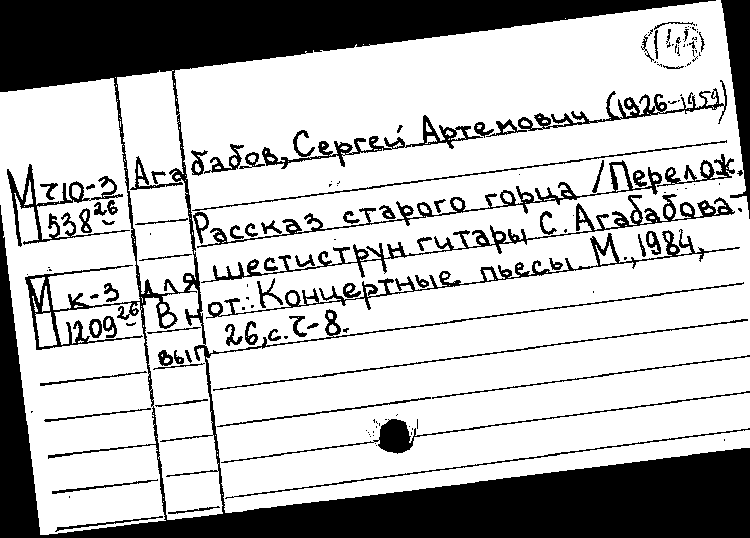 144
Агабабов, Сергей Артемович (1926-1959)
М τ10-3
538²⁶
Рассказ старого горца /Перелож.
для шестиструн. гитары С. Агабабова.-
М к-3
1209²⁶
В нот.: Концертные пьесы. М., 1984,
вып. 26, с. 7-8.